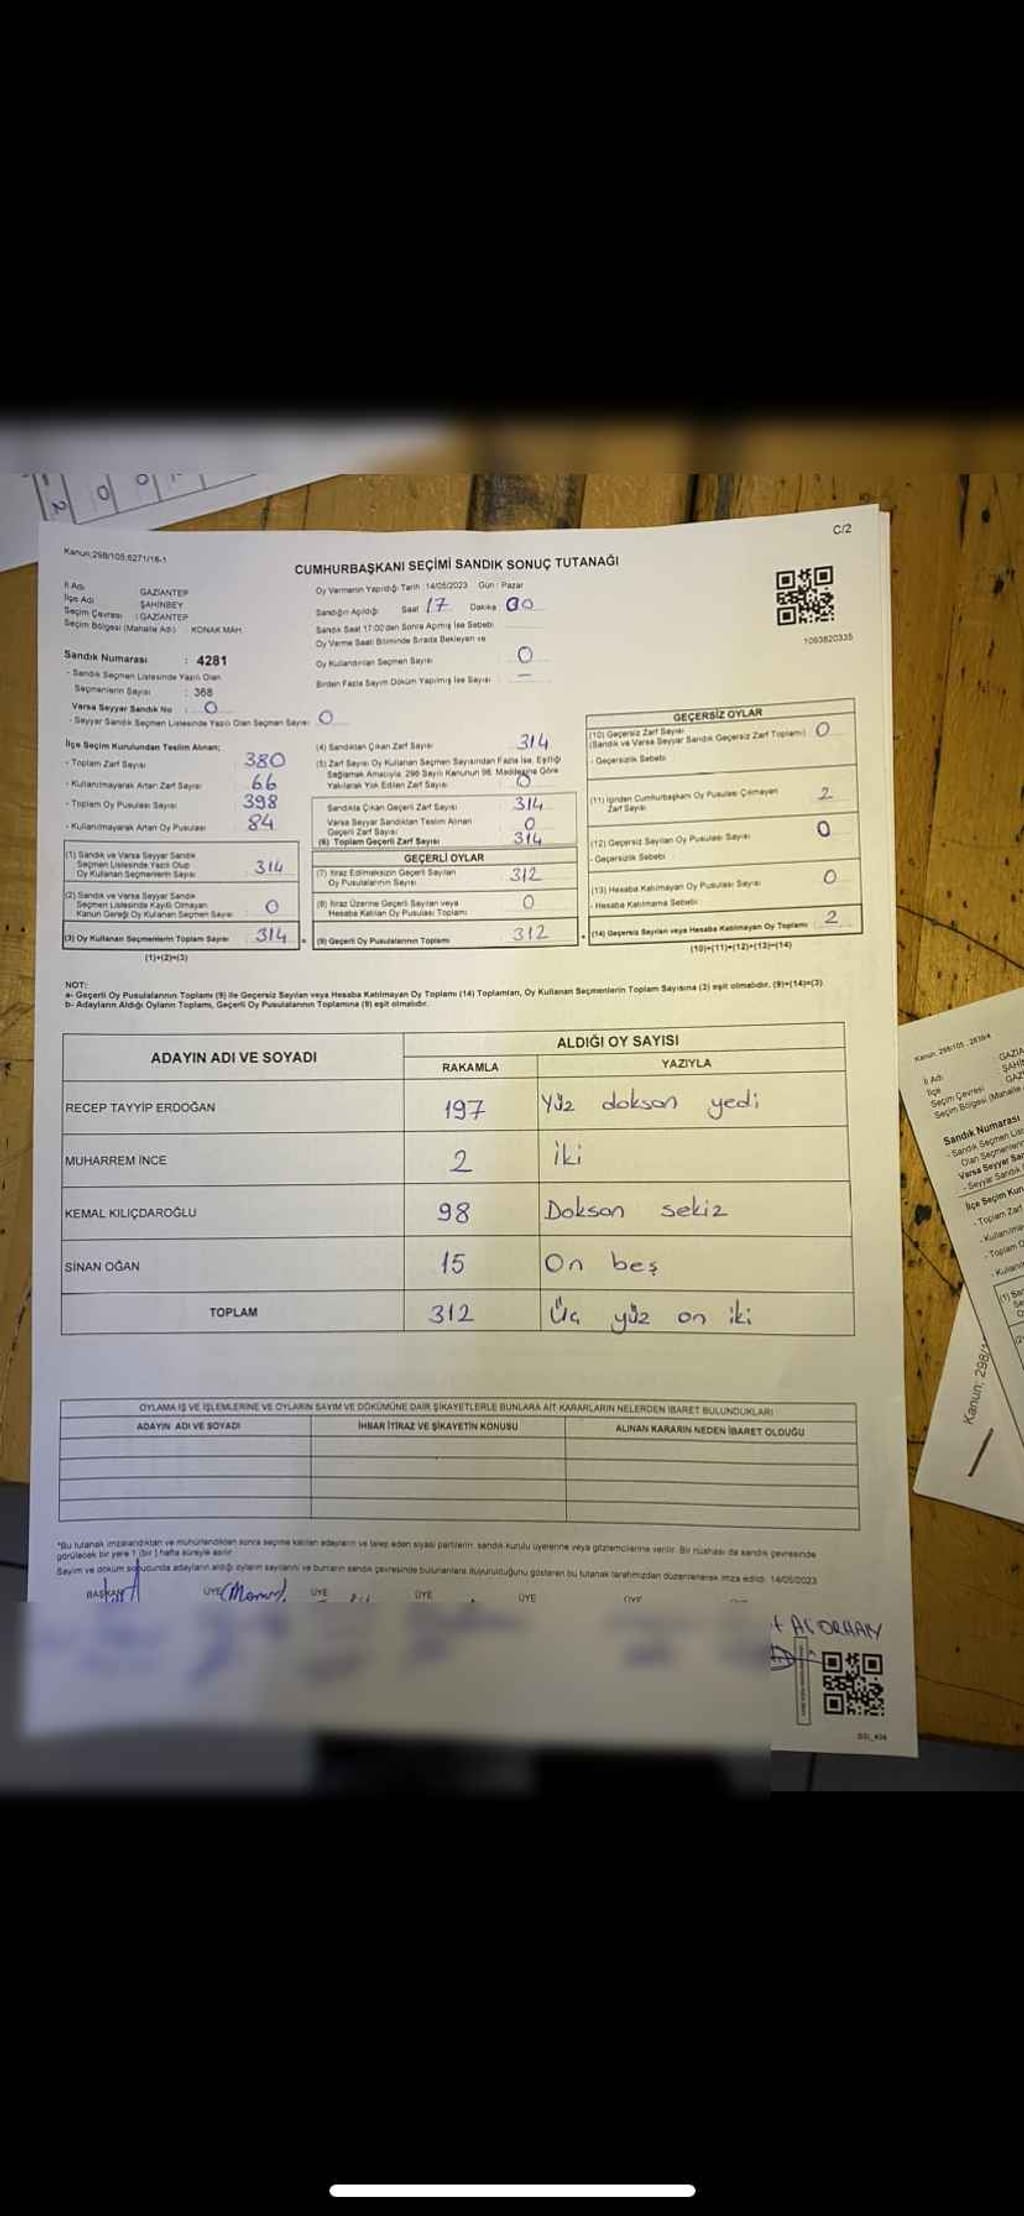 C/2
Kanun;298/105;6271/16-1
CUMHURBAŞKANI SEÇİMİ SANDIK SONUÇ TUTANAĞI
İl Adı GAZİANTEP
İlçe Adı ŞAHİNBEY
Seçim Çevresi : GAZİANTEP
Seçim Bölgesi (Mahalle Adı) KONAK MAH.
Oy Vermenin Yapıldığı Tarih : 14/05/2023 Gün : Pazar
Sandığın Açıldığı Saat 17 Dakika 00
Sandık Saat 17:00'den Sonra Açmış İse Sebebi
Oy Verme Saati Bitiminde Sırada Bekleyen ve
Oy Kullandırılan Seçmen Sayısı 0
Birden Fazla Sayım Döküm Yapılmış İse Sayısı –
1093820335
Sandık Numarası : 4281
- Sandık Seçmen Listesinde Yazılı Olan
Seçmenlerin Sayısı : 368
Varsa Seyyar Sandık No : 0
- Seyyar Sandık Seçmen Listesinde Yazılı Olan Seçmen Sayısı 0
İlçe Seçim Kurulundan Teslim Alınan;
- Toplam Zarf Sayısı 380
- Kullanılmayarak Artan Zarf Sayısı 66
- Toplam Oy Pusulası Sayısı 398
- Kullanılmayarak Artan Oy Pusulası 84
(1) Sandık ve Varsa Seyyar Sandık
Seçmen Listesinde Yazılı Olup
Oy Kullanan Seçmenlerin Sayısı 314
(2) Sandık ve Varsa Seyyar Sandık
Seçmen Listesinde Kayıtlı Olmayan
Kanun Gereği Oy Kullanan Seçmen Sayısı 0
(3) Oy Kullanan Seçmenlerin Toplam Sayısı 314
(1)+(2)=(3)
(4) Sandıktan Çıkan Zarf Sayısı 314
(5) Zarf Sayısı Oy Kullanan Seçmen Sayısından Fazla İse, Eşitliği
Sağlamak Amacıyla, 298 Sayılı Kanunun 98. Maddesine Göre
Yakılarak Yok Edilen Zarf Sayısı 0
Sandıkta Çıkan Geçerli Zarf Sayısı 314
Varsa Seyyar Sandıktan Teslim Alınan
Geçerli Zarf Sayısı 0
(6) Toplam Geçerli Zarf Sayısı 314
GEÇERLİ OYLAR
(7) İtiraz Edilmeksizin Geçerli Sayılan
Oy Pusulalarının Sayısı 312
(8) İtiraz Üzerine Geçerli Sayılan veya
Hesaba Katılan Oy Pusulası Toplamı 0
(9) Geçerli Oy Pusulalarının Toplamı 312
GEÇERSİZ OYLAR
(10) Geçersiz Zarf Sayısı
(Sandık ve Varsa Seyyar Sandık Geçersiz Zarf Toplamı) 0
- Geçersizlik Sebebi
(11) İçinden Cumhurbaşkanı Oy Pusulası Çıkmayan
Zarf Sayısı 2
(12) Geçersiz Sayılan Oy Pusulası Sayısı 0
- Geçersizlik Sebebi
(13) Hesaba Katılmayan Oy Pusulası Sayısı 0
- Hesaba Katılmama Sebebi
(14) Geçersiz Sayılan veya Hesaba Katılmayan Oy Toplamı 2
(10)+(11)+(12)+(13)=(14)
NOT:
a- Geçerli Oy Pusulalarının Toplamı (9) ile Geçersiz Sayılan veya Hesaba Katılmayan Oy Toplamı (14) Toplamları, Oy Kullanan Seçmenlerin Toplam Sayısına (3) eşit olmalıdır. (9)+(14)=(3)
b- Adayların Aldığı Oyların Toplamı, Geçerli Oy Pusulalarının Toplamına (9) eşit olmalıdır.
ADAYIN ADI VE SOYADI
ALDIĞI OY SAYISI
RAKAMLA YAZIYLA
RECEP TAYYİP ERDOĞAN 197 Yüz doksan yedi
MUHARREM İNCE 2 iki
KEMAL KILIÇDAROĞLU 98 Doksan sekiz
SİNAN OĞAN 15 On beş
TOPLAM 312 Üç yüz on iki
OYLAMA İŞ VE İŞLEMLERİNE VE OYLARIN SAYIM VE DÖKÜMÜNE DAİR ŞİKAYETLERLE BUNLARA AİT KARARLARIN NELERDEN İBARET BULUNDUKLARI
ADAYIN ADI VE SOYADI İHBAR İTİRAZ VE ŞİKAYETİN KONUSU ALINAN KARARIN NEDEN İBARET OLDUĞU
*Bu tutanak imzalandıktan ve mühürlendikten sonra seçime katılan adayların ve talep eden siyasi partilerin, sandık kurulu üyelerine veya gözlemcilerine verilir. Bir nüshası da sandık çevresinde
görülecek bir yere 1 (bir) hafta süreyle asılır.
Sayım ve döküm sonucunda adayların aldığı oyların sayılarını ve bunların sandık çevresinde bulunanlara duyurulduğunu gösteren bu tutanak tarafımızdan düzenlenerek imza edildi. 14/05/2023
BAŞKAN ÜYE ÜYE ÜYE ÜYE ÜYE
ORHAN
Kanun; 298/105 - 2839/4
İl Adı
İlçe
Seçim Çevresi
Seçim Bölgesi (Mahalle
Sandık Numarası
Kanun; 298/